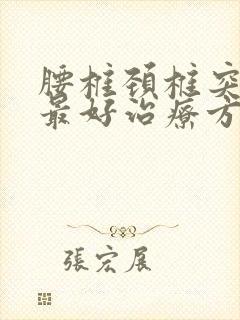 腰椎颈椎突
最好治疗方
張宏展